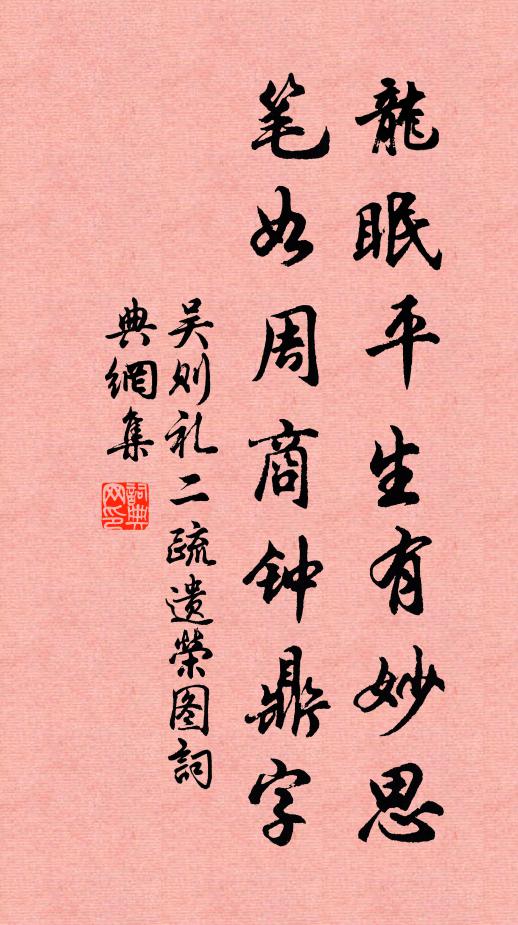 龍眠平生有妙思
笔如周商钟鼎字
吴则礼二疏遗榮图詞
典網集
詞典网印